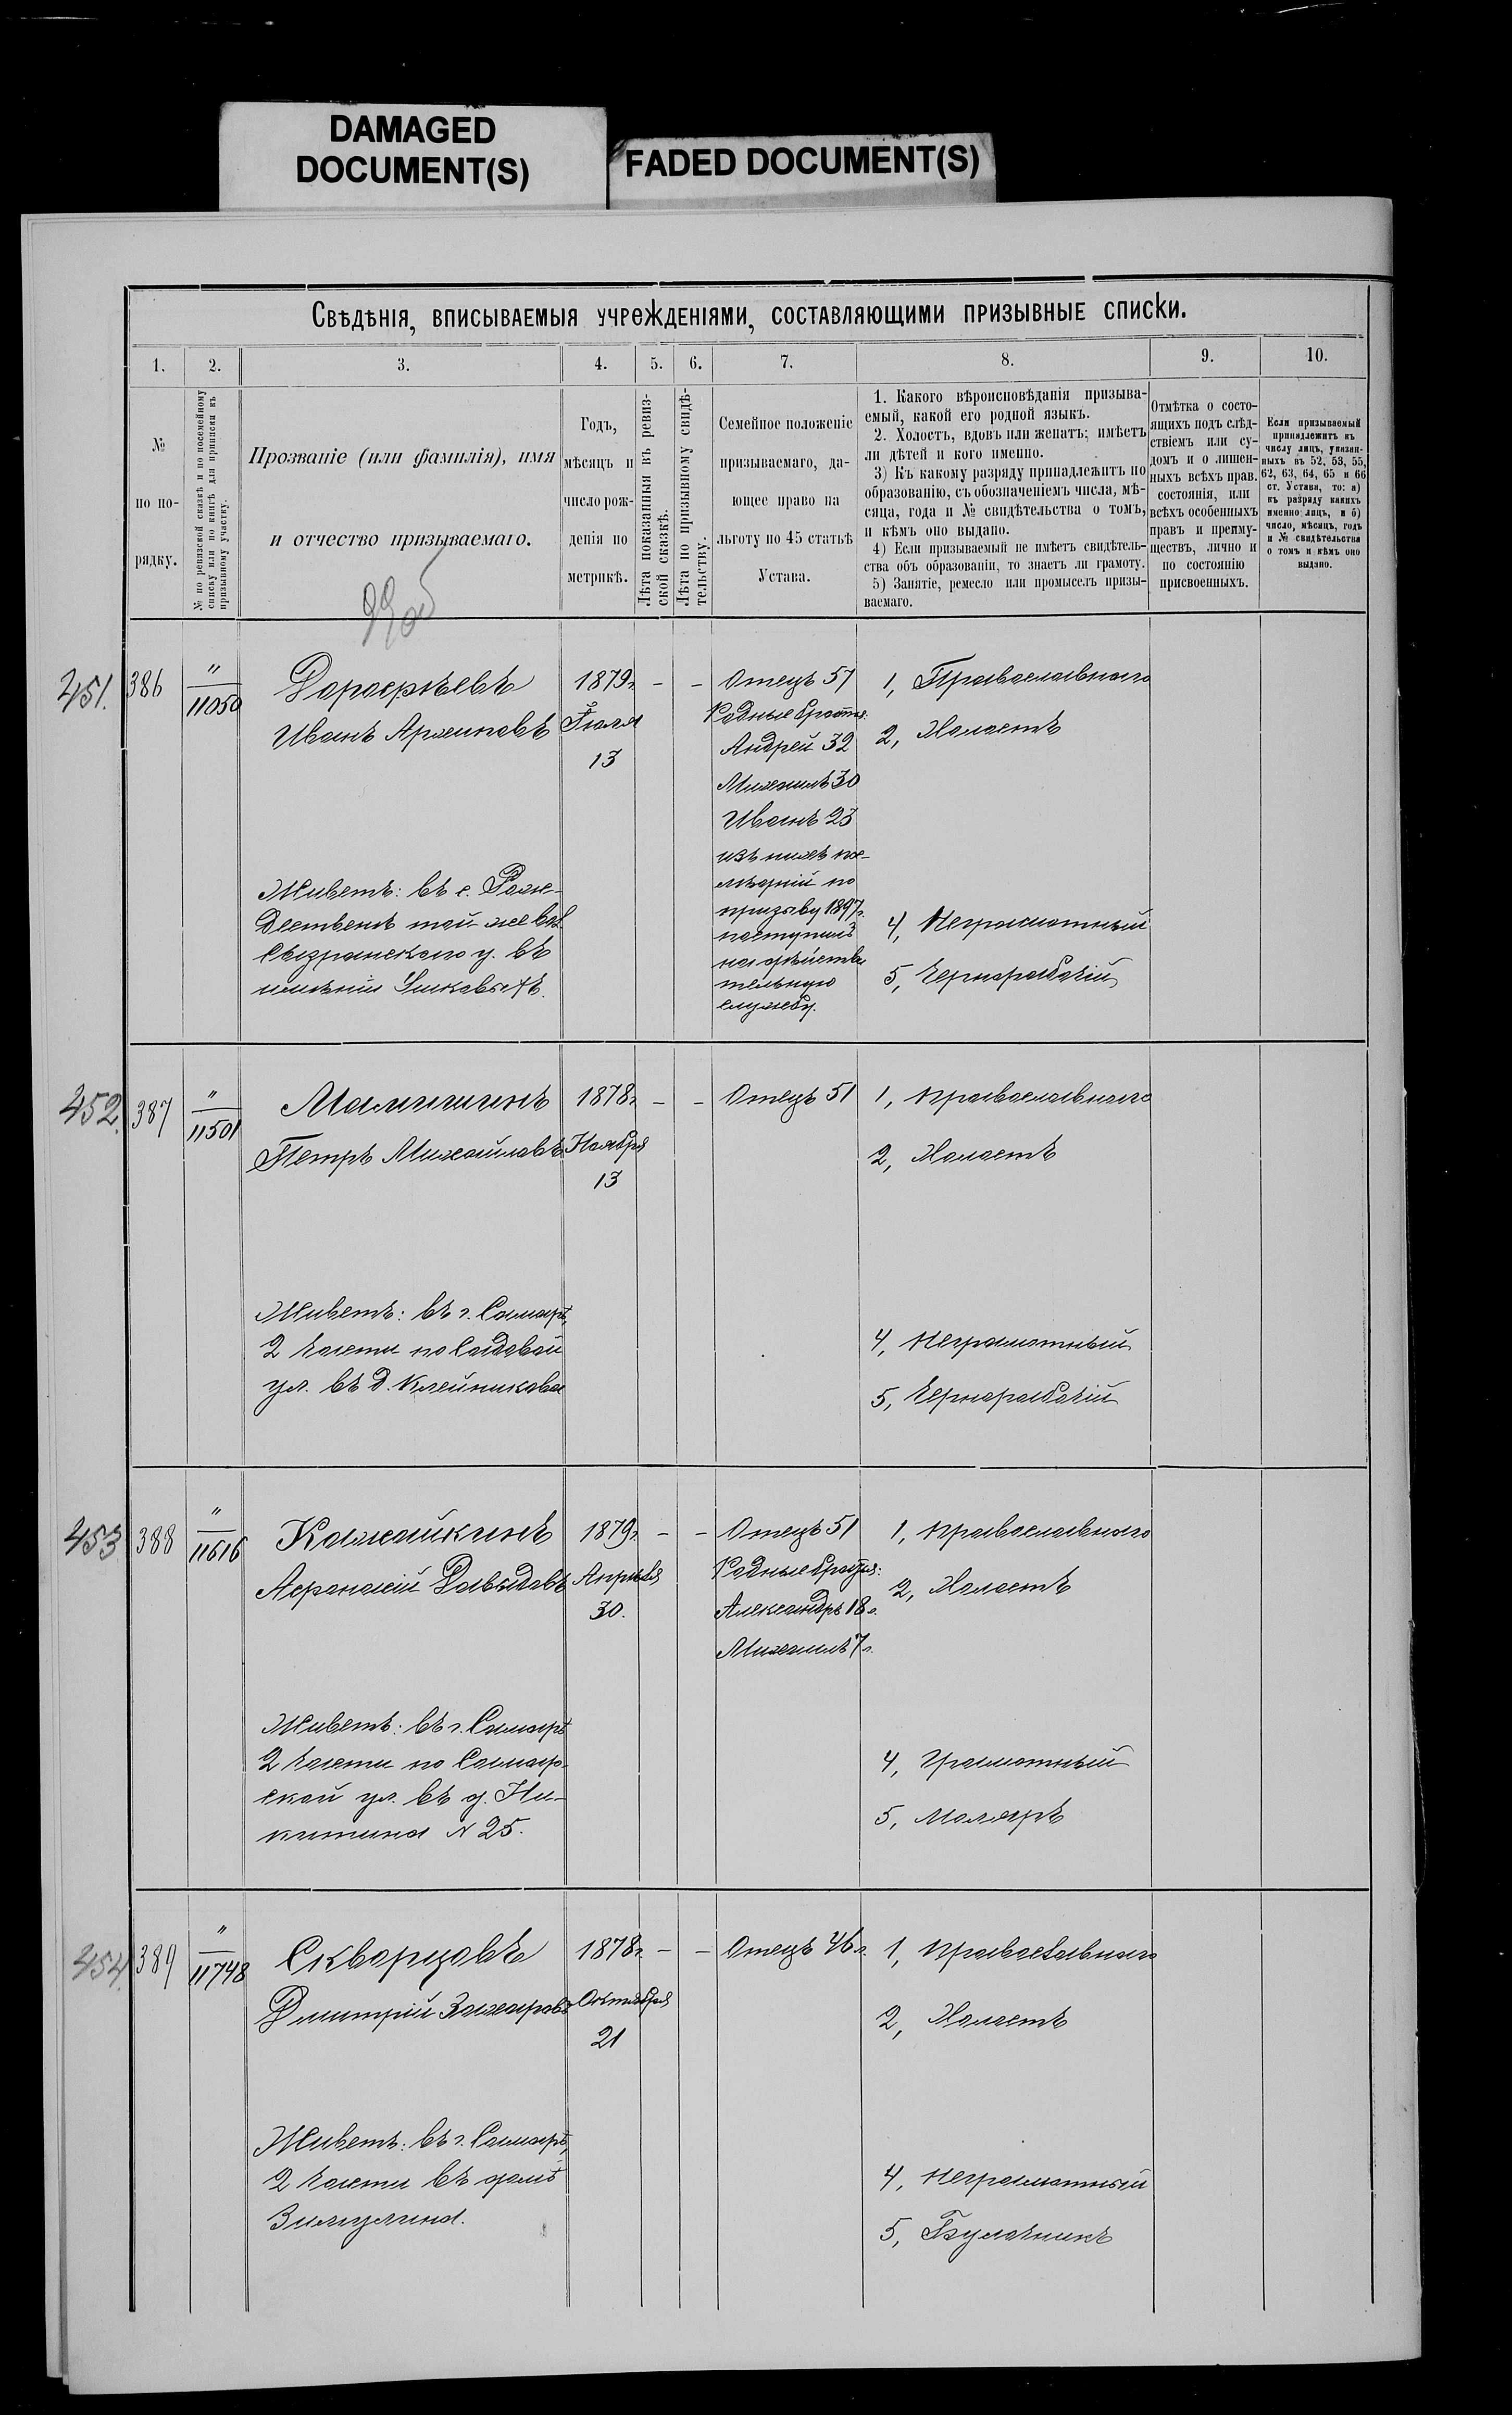 DAMAGED
DOCUMENT(S)
FADED DOCUMENT(S)
Свѣдѣнія, вписываемыя учрежденіями, составляющими призывные списки.
1.
2.
3.
4.
5.
6.
7.
8.
9.
10.
№
по по-
рядку.
№ по ревизской сказкѣ и по посемейному
списку или по книгѣ для приписки къ
призывному участку.
Прозваніе (или фамилія), имя
и отчество призываемаго.
Годъ,
мѣсяцъ и
число рож-
денія по
метрикѣ.
Лѣта показанныя въ ревиз-
ской сказкѣ.
Лѣта по призывному свидѣ-
тельству.
Семейное положеніе
призываемаго, да-
ющее право на
льготу по 45 статьѣ
Устава.
1. Какого вѣроисповѣданія призыва-
емый, какой его родной языкъ.
2. Холостъ, вдовъ или женатъ; имѣетъ
ли дѣтей и кого именно.
3) Къ какому разряду принадлежитъ по
образованію, съ обозначеніемъ числа, мѣ-
сяца, года и № свидѣтельства о томъ,
и кѣмъ оно выдано.
4) Если призываемый не имѣетъ свидѣтель-
ства объ образованіи, то знаетъ ли грамоту.
5) Занятіе, ремесло или промыселъ призы-
ваемаго.
Отмѣтка о состо-
ящихъ подъ слѣд-
ствіемъ или су-
домъ и о лишен-
ныхъ всѣхъ прав.
состоянія, или
всѣхъ особенныхъ
правъ и преиму-
ществъ, лично и
по состоянію
присвоенныхъ.
Если призываемый
принадлежитъ къ
числу лицъ, указан-
ныхъ въ 52, 53, 55,
62, 63, 64, 65 и 66
ст. Устава, то: а)
къ разряду какихъ
именно лицъ, и б)
число, мѣсяцъ, годъ
и № свидѣтельства
о томъ и кѣмъ оно
выдано.
451.
386
"
11050
Дорофѣевъ
Иванъ Архиповъ
Живетъ: въ с. Рож-
дественѣ той же вол.
Сызранскаго у. въ
имѣніи
1879г.
Іюля
13
-
-
Отецъ 57
Родные братья:
Андрей 32
Михаилъ 30
Иванъ 23
изъ нихъ по-
слѣдній по
призыву 1897г.
поступилъ
на дѣйстви
тельную
службу.
1, Православнаго
2, Холостъ
4, Неграмотный
5, Чернорабочій
452.
387
"
11501
Малышинъ
Петръ Михайловъ
Живетъ: въ г. Самарѣ,
2 части по Садовой
ул. въ д. Клейникова
1878г.
Ноября
13
-
-
Отецъ 51
1, Православнаго
2, Холостъ
4, Неграмотный
5, Чернорабочій
453
388
"
11616
Камайкинъ
Афанасій Давыдовъ
Живетъ: въ г. Самарѣ
2 части по Самар-
ской ул. въ д. Ни-
китина № 25.
1879г.
Апрѣля
30.
-
-
Отецъ 51
Родные братья:
Александръ 18 г.
Михаилъ 7 г.
1, Православнаго
2, Холостъ
4, Грамотный
5, Маляръ
454.
389
"
11748
Скворцовъ
Дмитрій Захаровъ
Живетъ: въ г. Самарѣ,
2 части въ домѣ
1878г.
Октября
21
-
-
Отецъ 46 г.
1, Православнаго
2, Холостъ
4, Неграмотный
5, Булочникъ